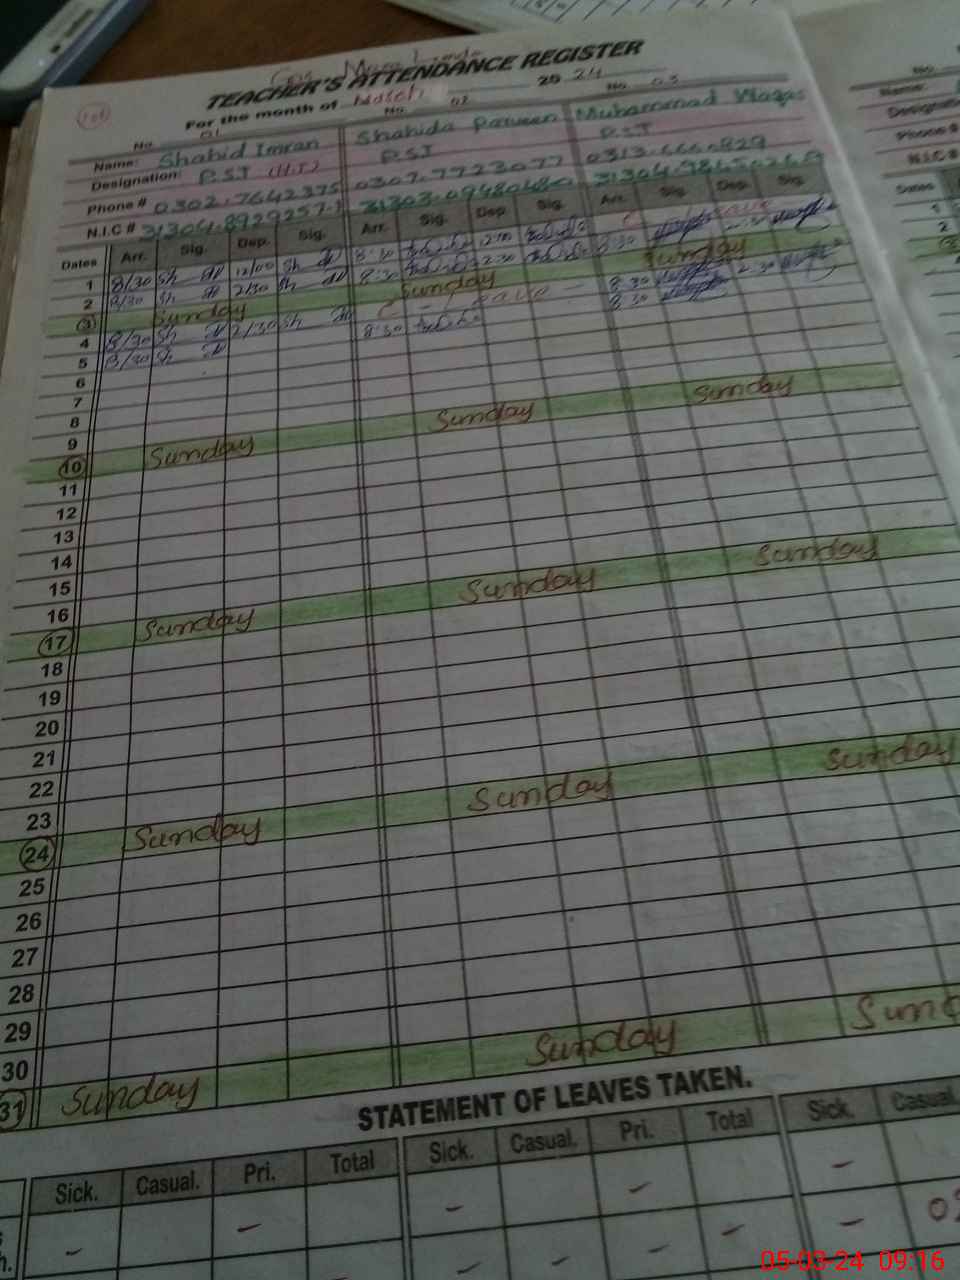 TEACHER'S ATTENDANCE REGISTER
For the month of March 2024
No. 01 No. 02 No. 03
Name: Shahid Imran Shahida Parveen Muhammad Waqas
Designation: P.S.T (H.T) P.S.T P.S.T
Phone # 0302.7642375 0307.7723077
N.I.C #
Dates Arr. Sig. Dep. Sig. Arr. Sig. Dep. Sig. Arr. Sig. Dep. Sig.
1 8/30 Sh 12/00 Sh 8:30 12:00
2 8/30 Sh 2/30 Sh 8:30 2:30 8:30 2:30
3 Sunday Sunday Sunday
4 8/30 Sh 2/30 Sh 8 30 2:30
5 8/30 Sh 8:30 8 30
6
7
8
9
10 Sunday Sunday Sunday
11
12
13
14
15
16
17 Sunday Sunday Sunday
18
19
20
21
22
23
24 Sunday Sunday Sunday
25
26
27
28
29
30
31 Sunday Sunday
STATEMENT OF LEAVES TAKEN.
Sick. Casual. Pri. Total Sick. Casual. Pri. Total Sick. Casual.
Name:
Phone #
N.I.C #
Dates
1
2
05-03-24 09:16